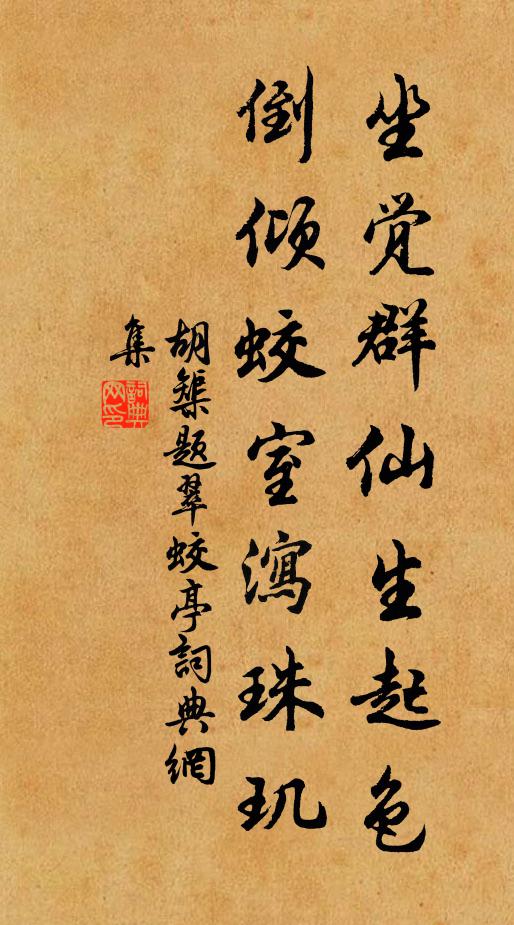 坐觉群仙生起色
倒倾蛟室瀉珠玑
胡榘题翠蛟亭詞典網
集
詞典網印